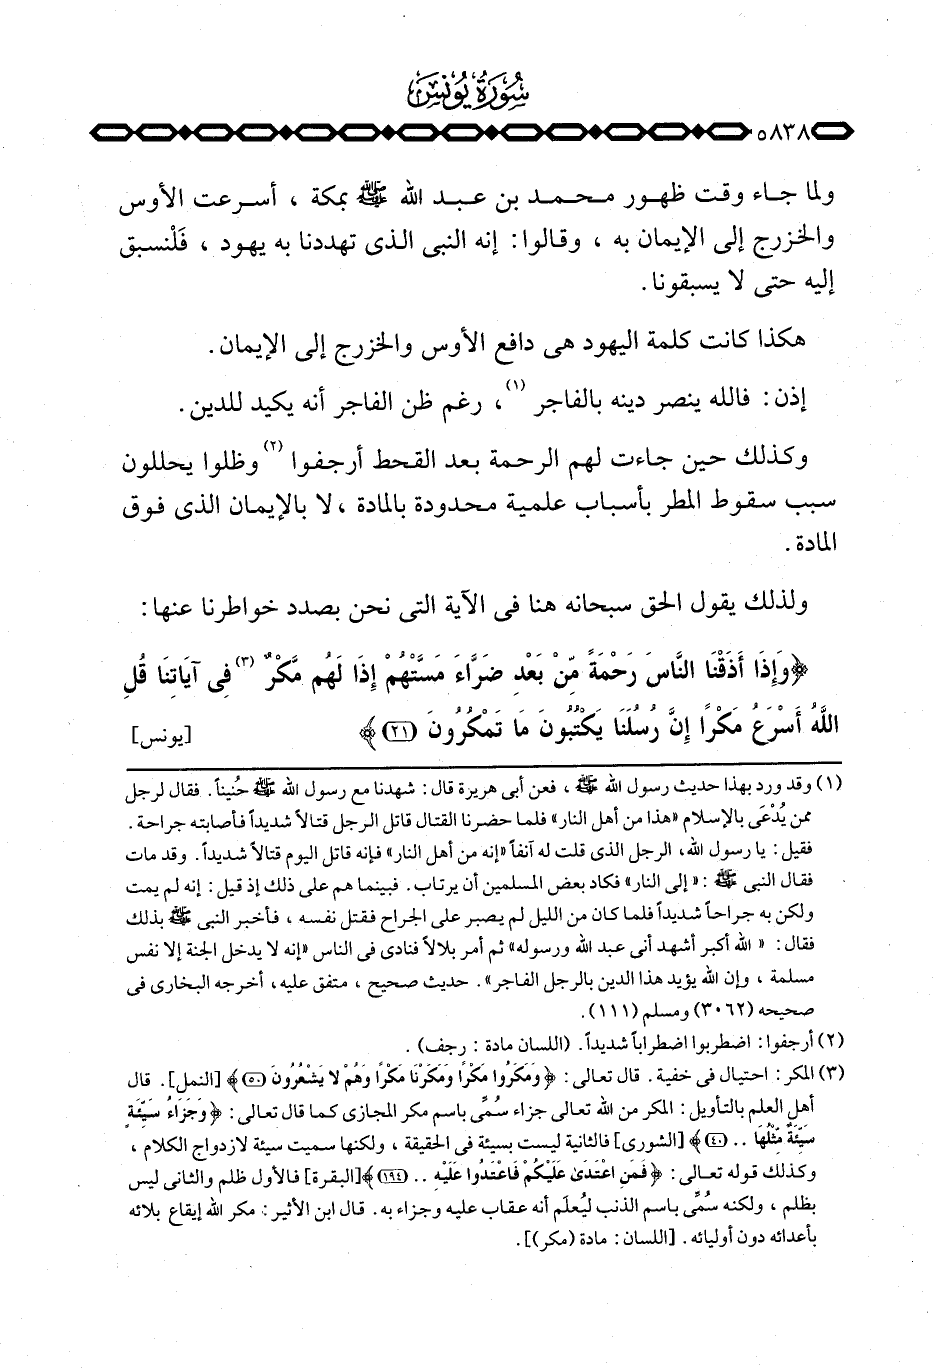 سُورَةُ يُونُسَ
٥٨٣٨
ولما جاء وقت ظهور محمد بن عبد الله ﷺ بمكة ، أسرعت الأوس
والخزرج إلى الإيمان به ، وقالوا: إنه النبى الذى تهددنا به يهود ، فَلْنسبق
إليه حتى لا يسبقونا.
هكذا كانت كلمة اليهود هى دافع الأوس والخزرج إلى الإيمان.
إذن: فالله ينصر دينه بالفاجر (١)، رغم ظن الفاجر أنه يكيد للدين.
وكذلك حين جاءت لهم الرحمة بعد القحط أرجفوا (٢) وظلوا يحللون
سبب سقوط المطر بأسباب علمية محدودة بالمادة ، لا بالإيمان الذى فوق
المادة.
ولذلك يقول الحق سبحانه هنا فى الآية التى نحن بصدد خواطرنا عنها:
﴿وَإِذَا أَذَقْنَا النَّاسَ رَحْمَةً مِّنْ بَعْدِ ضَرَّاءَ مَسَّتْهُمْ إِذَا لَهُم مَّكْرٌ (٣) فِى آيَاتِنَا قُلِ
اللَّهُ أَسْرَعُ مَكْرًا إِنَّ رُسُلَنَا يَكْتُبُونَ مَا تَمْكُرُونَ (٢١)﴾ [يونس]
(١) وقد ورد بهذا حديث رسول الله ﷺ ، فعن أبى هريرة قال: شهدنا مع رسول الله ﷺ حُنيناً. فقال لرجل
ممن يُدْعَى بالإسلام «هذا من أهل النار» فلما حضرنا القتال قاتل الرجل قتالاً شديداً فأصابته جراحة.
فقيل: يا رسول الله، الرجل الذى قلت له آنفاً «إنه من أهل النار» فإنه قاتل اليوم قتالاً شديداً. وقد مات
فقال النبى ﷺ : «إلى النار» فكاد بعض المسلمين أن يرتاب. فبينما هم على ذلك إذ قيل: إنه لم يمت
ولكن به جراحاً شديداً فلما كان من الليل لم يصبر على الجراح فقتل نفسه ، فأخبر النبى ﷺ بذلك
فقال: « الله أكبر أشهد أنى عبد الله ورسوله» ثم أمر بلالاً فنادى فى الناس «إنه لا يدخل الجنة إلا نفس
مسلمة ، وإن الله يؤيد هذا الدين بالرجل الفاجر». حديث صحيح ، متفق عليه، أخرجه البخارى فى
صحيحه (٣٠٦٢) ومسلم (١١١).
(٢) أرجفوا: اضطربوا اضطراباً شديداً. (اللسان مادة : رجف) .
(٣) المكر: احتيال فى خفية. قال تعالى: ﴿وَمَكَرُوا مَكْرًا وَمَكَرْنَا مَكْرًا وَهُمْ لا يَشْعُرُونَ (٥٠)﴾ [النمل]. قال
أهل العلم بالتأويل: المكر من الله تعالى جزاء سُمِّى باسم مكر المجازى كما قال تعالى: ﴿وَجَزَاءُ سَيِّئَةٍ
سَيِّئَةٌ مِّثْلُهَا .. (٤٠)﴾ [الشورى] فالثانية ليست بسيئة فى الحقيقة ، ولكنها سميت سيئة لازدواج الكلام ،
وكذلك قوله تعالى: ﴿فَمَنِ اعْتَدَىٰ عَلَيْكُمْ فَاعْتَدُوا عَلَيْهِ .. (١٩٤)﴾[البقرة] فالأول ظلم والثانى ليس
بظلم ، ولكنه سُمِّى باسم الذنب ليُعلَم أنه عقاب عليه وجزاء به. قال ابن الأثير: مكر الله إيقاع بلائه
بأعدائه دون أوليائه. [اللسان: مادة (مكر)].